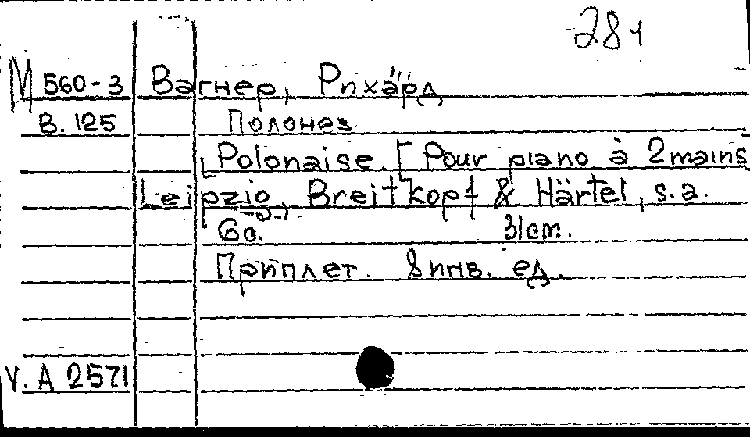 281
М 560-3 Вагнер, Рихард
В. 125 Полонез
[Polonaise. [Pour piano à 2 mains
Leipzig, Breitkopf & Härtel, s.a.
6с. 31cm.
Приплет. 8 инв. ед.
V. A 2571